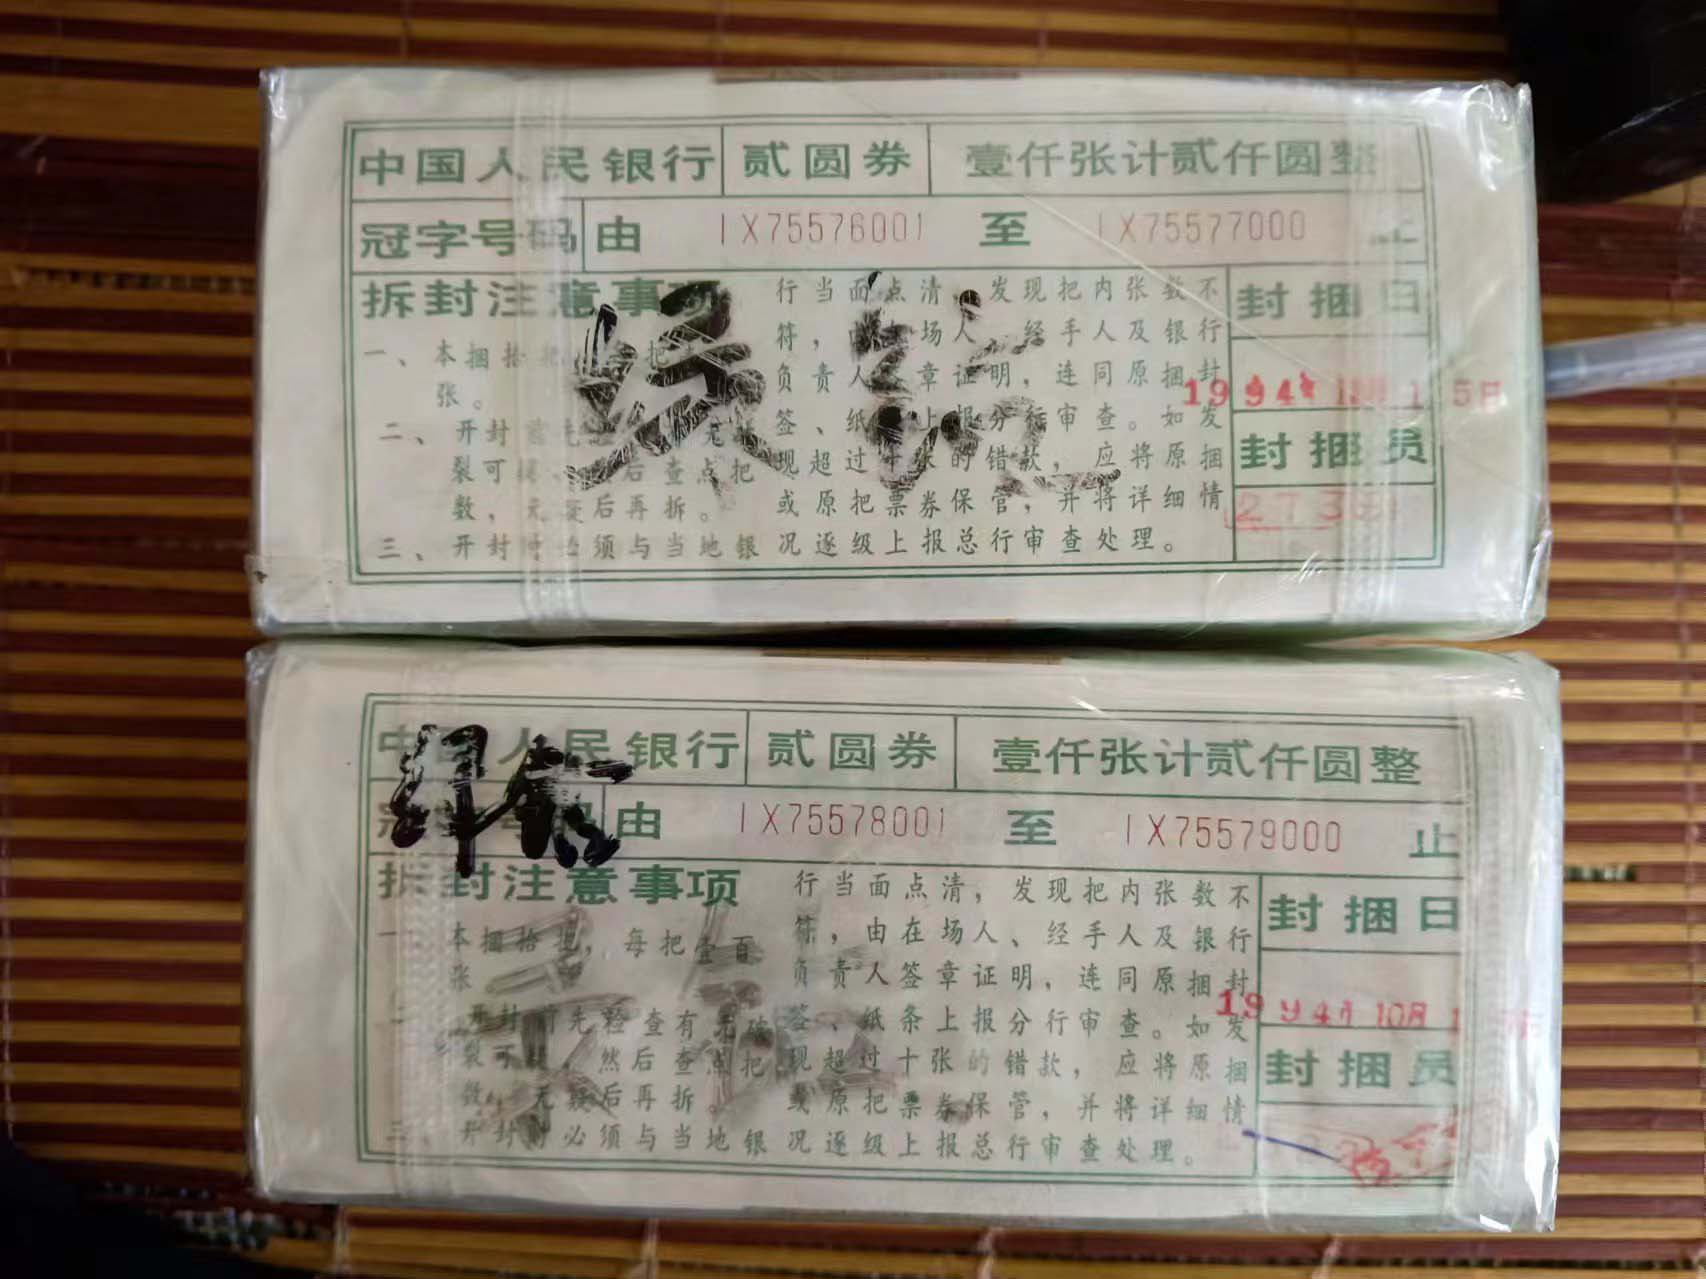 中国人民银行 贰圆券 壹仟张计贰仟圆整
冠字号码 由 IX75576001 至 IX75577000 止
拆封注意事项
一、本捆拾把
张。
二、开封
裂可 后查点把
数，无疑后再拆。
三、开封时必须与当地银
行当面点清，发现把内张数不
符，由 场人、经手人及银行
负责人签章证明，连同原捆封
签、纸 上报分行审查。如发
现超过十张的错款，应将原捆
或原把票券保管，并将详细情
况逐级上报总行审查处理。
封捆日
1994年 10月 15日
封捆员
中国人民银行 贰圆券 壹仟张计贰仟圆整
冠字号码 由 IX75578001 至 IX75579000 止
拆封注意事项
一、本捆拾把，每把壹百
张
二、开封前先检查有无破
裂可疑，然后查点把
数，无疑后再拆。
三、开封时必须与当地银
行当面点清，发现把内张数不
符，由在场人、经手人及银行
负责人签章证明，连同原捆封
签、纸条上报分行审查。如发
现超过十张的错款，应将原捆
或原把票券保管，并将详细情
况逐级上报总行审查处理。
封捆日
1994年 10月 1
封捆员